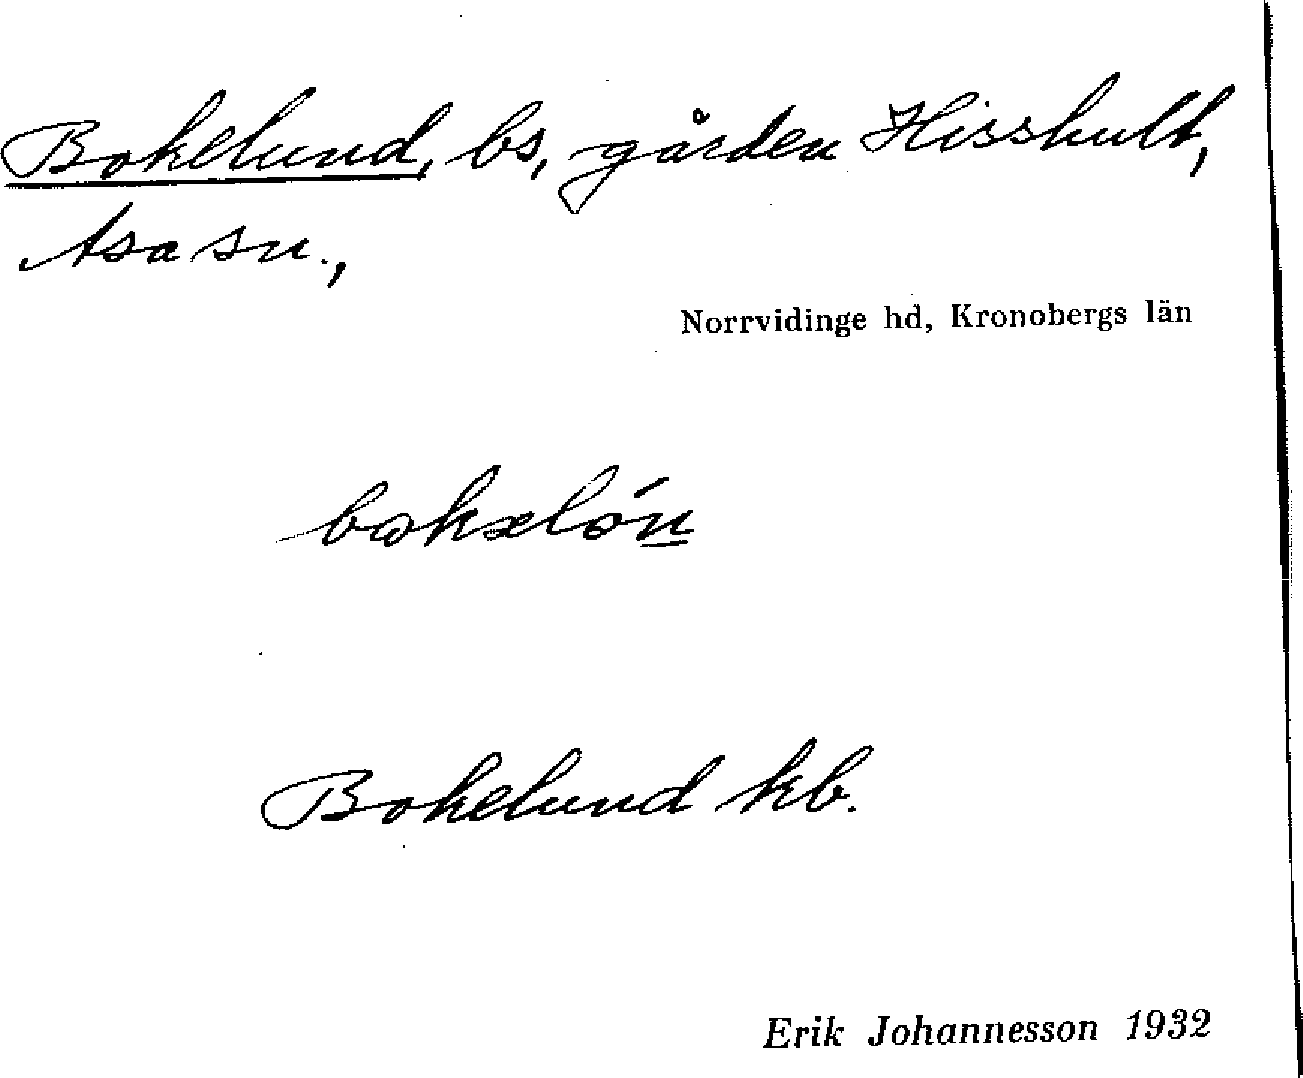 Bokelund, bs, gården Hisshult,
Asa sn.,
Norrvidinge hd, Kronobergs län
bokəlón
Bokelund kb.
Erik Johannesson 1932